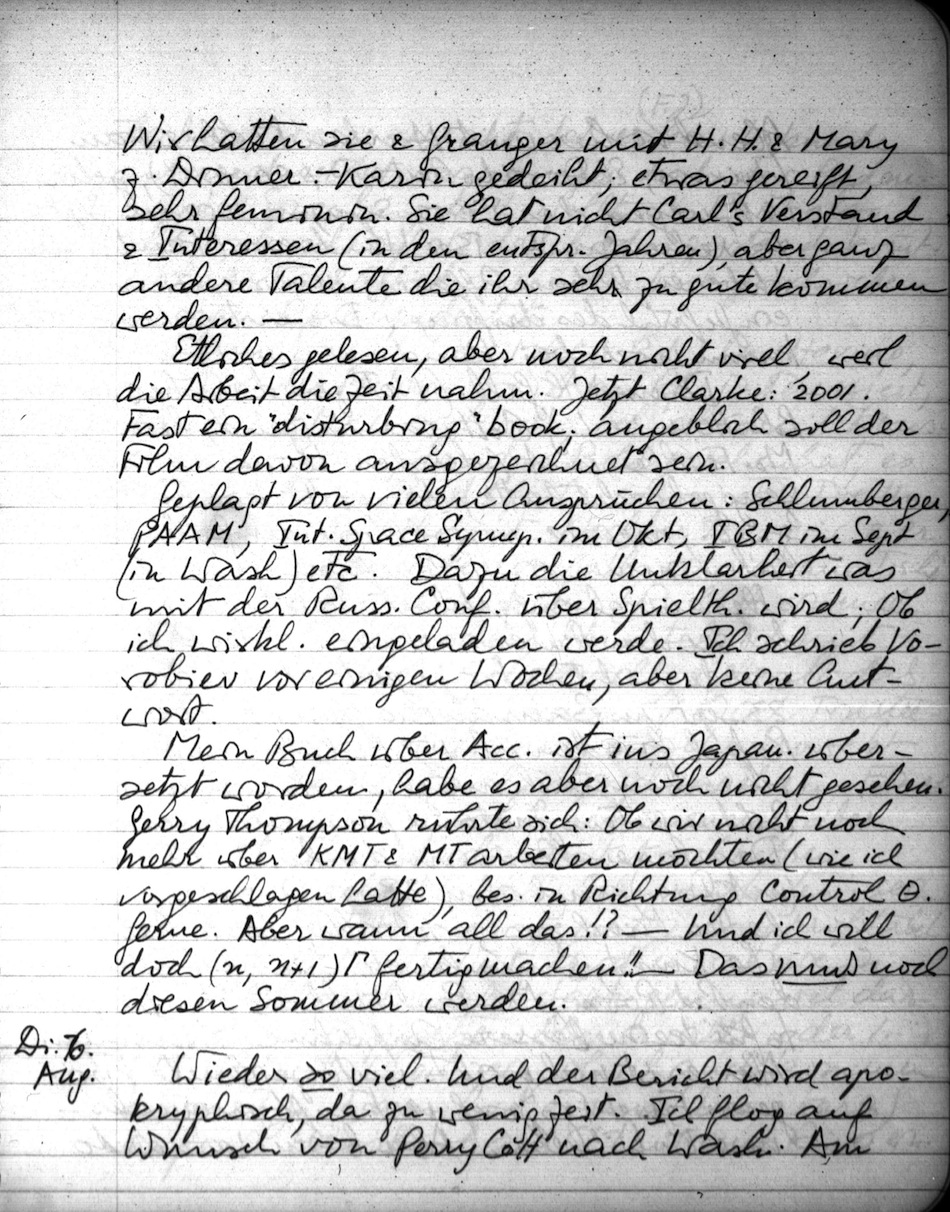 Wir hatten sie & Granger mit H. H. & Mary
z. Dinner. – Karin gedeiht, etwas gereift,
sehr feminin. Sie hat nicht Carl's Verstand
& Interessen (in den entspr. Jahren), aber ganz
andere Talente die ihr sehr zu gute kommen
werden. —
Etliches gelesen, aber noch nicht viel, weil
die Arbeit die Zeit nahm. Jetzt Clarke: 2001.
Fast ein "disturbing" book; angeblich soll der
Film davon ausgezeichnet sein.
Geplagt von vielen Ansprüchen: Schlumberger,
PAAM, Int. Space Symp. im Okt, IBM im Sept
(in Wash) etc. Dazu die Unklarheit was
mit der Russ. Conf. über Spielth. wird; Ob
ich wirkl. eingeladen werde. Ich schrieb Vo-
robiev vor einigen Wochen, aber keine Ant-
wort.
Mein Buch über Acc. ist ins Japan. über-
setzt worden, habe es aber noch nicht gesehen.
Gerry Thompson rührte sich: Ob wir nicht noch
mehr über KMT & MT arbeiten möchten (wie ich
vorgeschlagen hatte), bes. in Richtung Control Θ.
Gerne. Aber wann all das!? — Und ich will
doch (n, n+1) Γ fertig machen!! — Das muß noch
diesen Sommer werden.
Di. 6.
Aug.
Wieder so viel. Und der Bericht wird apo-
kryphisch, da zu wenig Zeit. Ich flog auf
Wunsch von Perry Cott nach Wash. Am